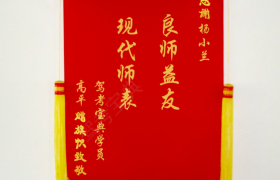 感谢杨小兰
良师益友
现代师表
驾考宝典学员
高平赠旗致敬